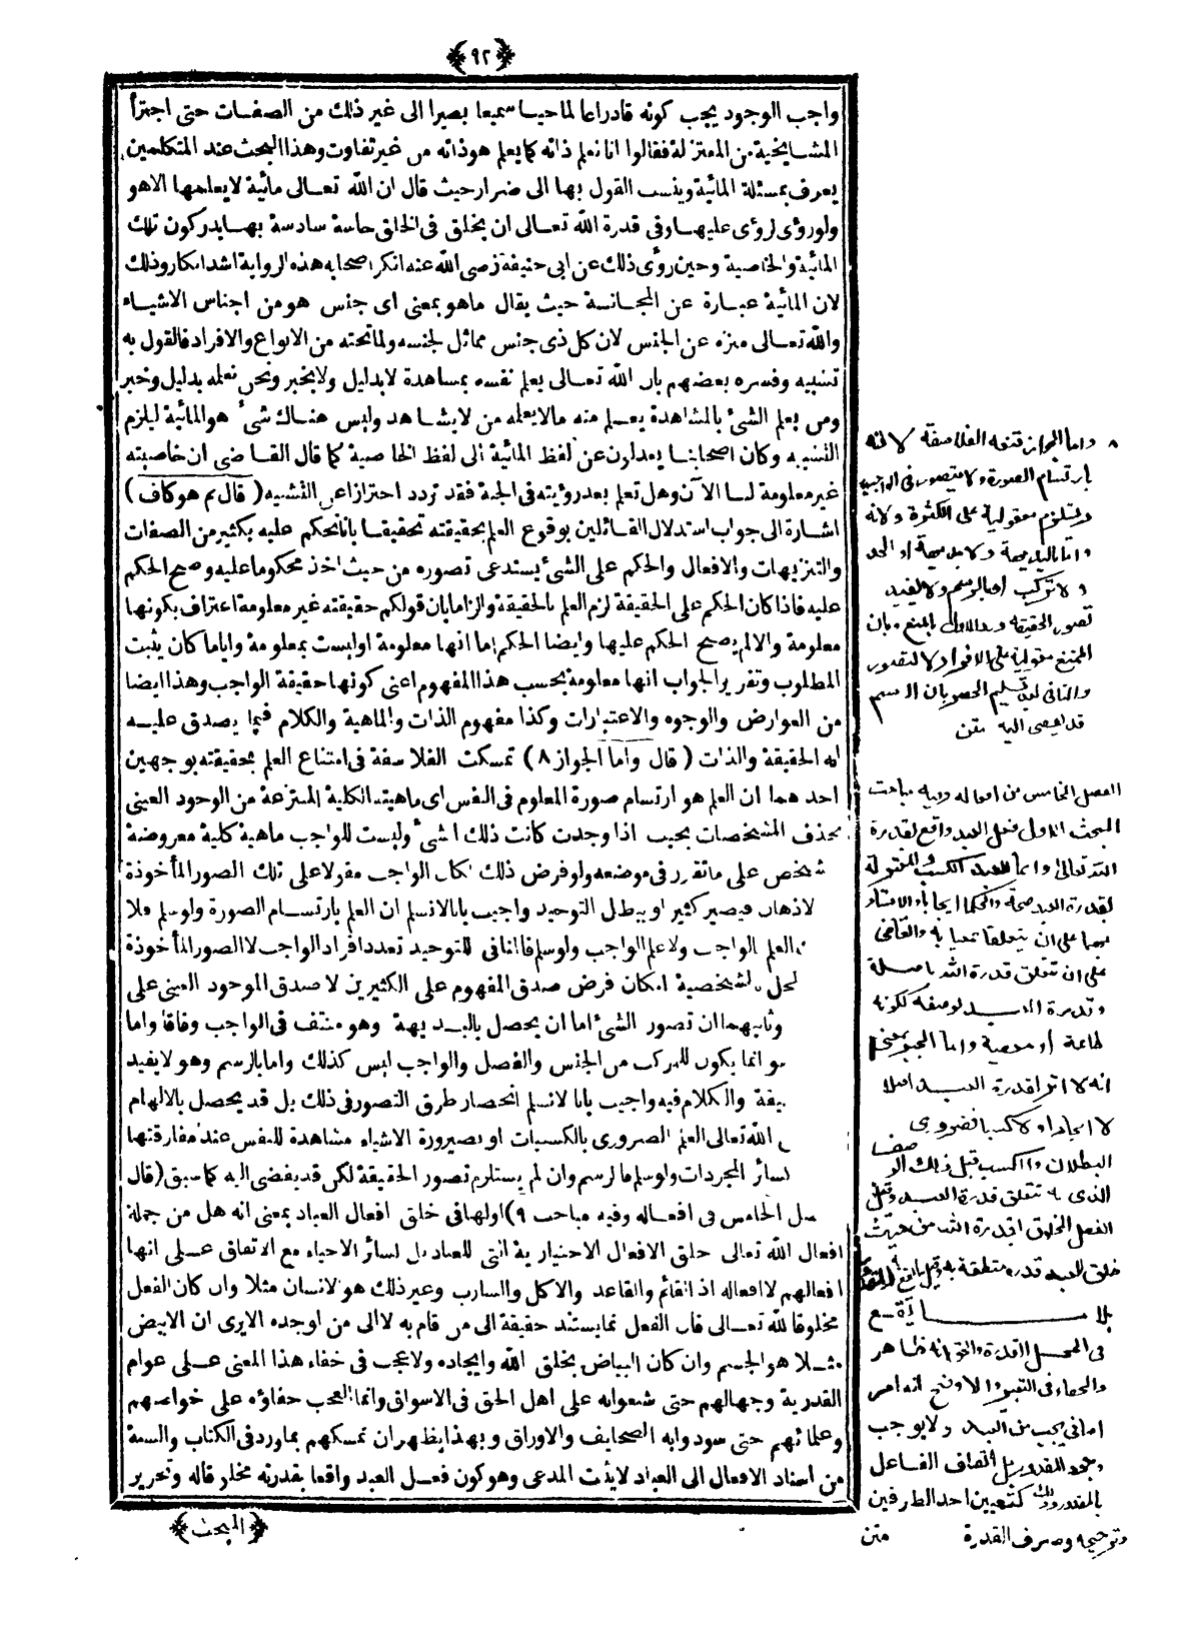 ﴿٩٢﴾
واجب الوجود يجب كونه قادرا عالما حيا سميعا بصيرا الى غير ذلك من الصفات حتى اجترأ
المشايخية من المعتزلة فقالوا انا نعلم ذاته كما يعلم هو ذاته من غير تفاوت وهذا البحث عند المتكلمين
يعرف بمسئلة المائية وينسب القول بها الى ضرار حيث قال ان الله تعالى مائية لا يعلمها الا هو
ولو رؤى لرؤى عليها وفى قدرة الله تعالى ان يخلق فى الخلق حاسة سادسة بها يدركون تلك
المائية والخاصية وحين روى ذلك عن ابى حنيفة رضى الله عنه انكر اصحابه هذه الرواية اشد انكار وذلك
لان المائية عبارة عن المجانسة حيث يقال ما هو بمعنى اى جنس هو من اجناس الاشياء
والله تعالى منزه عن الجنس لان كل ذى جنس مماثل لجنسه ولما تحته من الانواع والافراد فالقول به
تشبيه وفسره بعضهم بان الله تعالى يعلم نفسه بمشاهدة لا بدليل ولا بخبر ونحن نعلمه بدليل وخبر
ومن يعلم الشئ بالمشاهدة يعلم منه مالا يعلمه من لا يشاهد وليس هناك شئ هو المائية ليلزم
التشبيه وكان اصحابنا يعدلون عن لفظ المائية الى لفظ الخاصية كما قال القاضى ان خاصيته
غير معلومة لنا الآن وهل تعلم بعد رؤيته فى الجنة فقد تردد احترازا عن التشبيه ( قال ثم هو كاف )
اشارة الى جواب استدلال القائلين بوقوع العلم بحقيقته تحقيقا بانا نحكم عليه بكثير من الصفات
والتنزيهات والافعال والحكم على الشئ يستدعى تصوره من حيث اخذ محكوما عليه وصح الحكم
عليه فاذا كان الحكم على الحقيقة لزم العلم بالحقيقة والزاما بان قولكم حقيقته غير معلومة اعتراف بكونها
معلومة والا لم يصح الحكم عليها وايضا الحكم اما انها معلومة او ليست بمعلومة واياما كان يثبت
المطلوب وتقرير الجواب انها معلومة بحسب هذا المفهوم اعنى كونها حقيقة الواجب وهذا ايضا
من العوارض والوجوه والاعتبارات وكذا مفهوم الذات والماهية والكلام فيما يصدق عليه
انه الحقيقة والذات ( قال واما الجواز ٨ ) تمسكت الفلاسفة فى امتناع العلم بحقيقته بوجهين
احدهما ان العلم هو ارتسام صورة المعلوم فى النفس اى ماهيته الكلية المنتزعة من الوجود العينى
بحذف المشخصات بحيث اذا وجدت كانت ذلك الشئ وليست للواجب ماهية كلية معروضة
شخص على ما تقرر فى موضعه ولو فرض ذلك لكان الواجب مقولا على تلك الصور المأخوذة
لاذهان فيصير كثيرا ويبطل التوحيد واجيب بانا لا نسلم ان العلم بارتسام الصورة ولو سلم فلا
العلم الواجب ولا علم الواجب ولو سلم فالمنافى للتوحيد تعدد افراد الواجب لا الصور المأخوذة
لشخصية امكان فرض صدق المفهوم على الكثيرين لا صدق الموجود العينى على
وثانيهما ان تصور الشئ اما ان يحصل بالبديهة وهو منتف فى الواجب وفاقا واما
وانما يكون للمركب من الجنس والفصل والواجب ليس كذلك واما بالرسم وهو لا يفيد
يقة والكلام فيه واجيب بانا لا نسلم انحصار طرق التصور فى ذلك بل قد يحصل بالالهام
الله تعالى العلم الضرورى بالكسبيات او بصيرورة الاشياء مشاهدة للنفس عند مفارقتها
لسائر المجردات ولو سلم فالرسم وان لم يستلزم تصور الحقيقة لكن قد يفضى اليه كما سبق ( قال
صل الخامس فى افعاله وفيه مباحث ٩ ) اولها فى خلق افعال العباد بمعنى انه هل من جملة
افعال الله تعالى خلق الافعال الاختيارية التى للعباد بل لسائر الاحياء مع الاتفاق على انها
افعالهم لا افعاله اذ القائم والقاعد والآكل والشارب وغير ذلك هو الانسان مثلا وان كان الفعل
مخلوقا لله تعالى فان الفعل انما يستند حقيقة الى من قام به لا الى من اوجده الا يرى ان الابيض
مثلا هو الجسم وان كان البياض بخلق الله وايجاده ولا عجب فى خفاء هذا المعنى على عوام
القدرية وجهالهم حتى شنعوا به على اهل الحق فى الاسواق وانما العجب خفاؤه على خواصهم
وعلمائهم حتى سودوا به الصحايف والاوراق وبهذا يظهر ان تمسكهم بما ورد فى الكتاب والسنة
من اسناد الافعال الى العباد لا يثبت المدعى وهو كون فعل العبد واقعا بقدرته مخلوقا له وتحرير
﴿المبحث﴾
٨ واما الجواز فمنعه الفلاسفة لانه
بارتسام الصورة ولا يتصور فى الواجب
ويستلزم مقولية على الكثرة ولانه
واما بالبديهة ولا بديهة او الحد
ولا تركب او بالرسم ولا يفيد
تصور الحقيقة ورد الاول بالمنع وبان
الممتنع مقولية على الافراد لا الصور
والثانى بعد تسليم الحصر بان الرسم
قد يفضى اليه متن
الفصل الخامس من افعاله وفيه مباحث
المبحث الاول فعل العبد واقع بقدرة
الله تعالى وانما للعبد الكسب والمعتزلة
بقدرة العبد صحة والحكما ايجابا والاستاذ
بهما على ان يتعلقا جميعا به والقاضى
على ان تتعلق قدرة الله باصله
وقدرة العبد بوصفه ككونه
طاعة أو معصية واما الجبر بمعنى
انه لا اثر لقدرة العبد اصلا
لا ايجادا ولا كسبا فضرورى
البطلان والكسب قيل وصف
الذى به تتعلق قدرة العبد وقيل
الفعل المخلوق بقدرة الله من حيث
خلق للعبد قدرة متعلقة به وقيل ما يقع
فى المحل القدرة
والخفاء فى التعبير والاوضح انه امر
اضافى يجب من العبد ولا يوجب
وجود المقدور بل اتصاف الفاعل
بالمقدور وذلك كتعيين احد الطرفين
وترجيحه وصرف القدرة متن